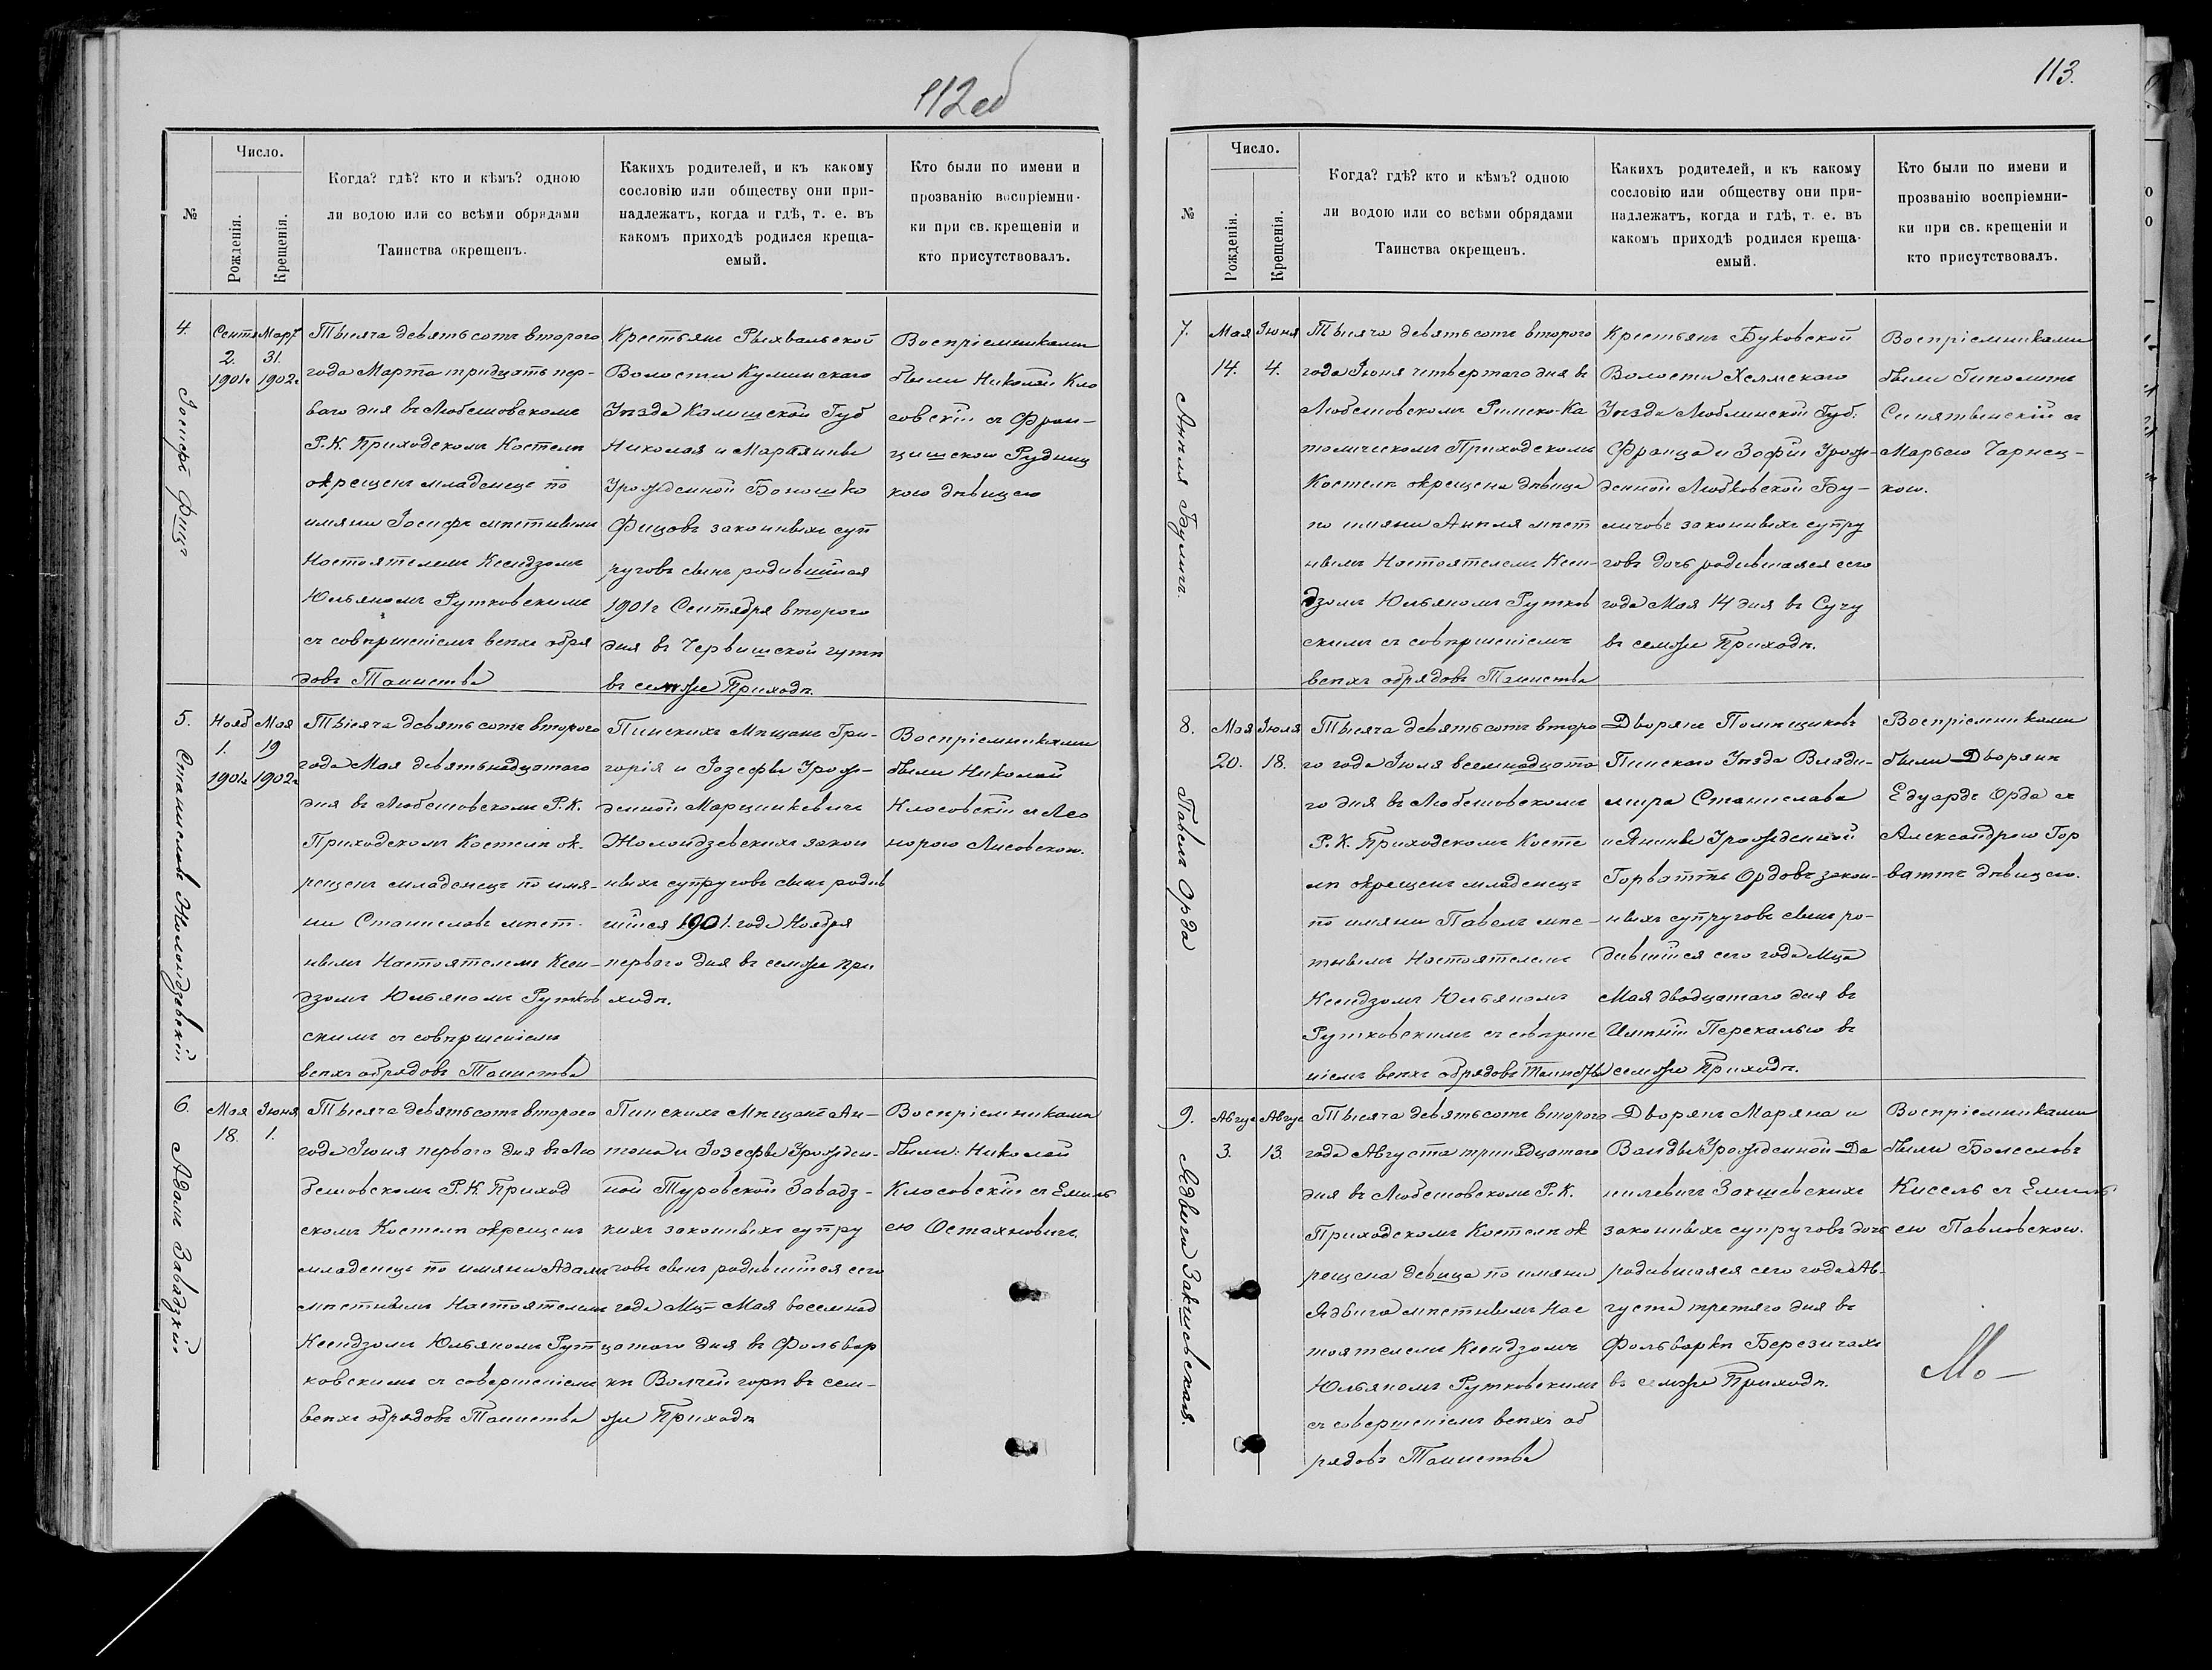 112об
№
Число.
Рожденія.
Крещенія.
Когда? гдѣ? кто и кѣмъ? одною
ли водою или со всѣми обрядами
Таинства окрещенъ.
Какихъ родителей, и къ какому
сословію или обществу они при-
надлежатъ, когда и гдѣ, т. е. въ
какомъ приходѣ родился креща-
емый.
Кто были по имени и
прозванію воспріемни-
ки при св. крещеніи и
кто присутствовалъ.
4.
Іосифъ Фицъ
Сентя
2.
1901г
Март
31.
1902г
Тысяча девятьсотъ второго
года Марта тридцать пер-
ваго дня въ Любешовскомъ
Р. К. Приходскомъ Костелѣ
окрещенъ младенецъ по
имяни Іосифъ мѣстнымъ
Настоятелемъ Ксендзомъ
Юльяномъ Рутковскимъ
съ совѣршеніемъ всѣхъ обря
довъ Таинства
Крестьянъ Рыхвальской
Волости
Уѣзда Калишской Губ
Николая и Маріянны
Урожденной
Фицовъ законныхъ суп
руговъ сынъ родившійся
1901г Сентября второго
дня въ Червищской гутѣ
въ семъже Приходѣ.
Воспріемниками
были Николай Кло
совскій съ Фран-
цишкою Рудниц
кою дѣвицею
5.
Станиславъ Жолондзевскій
Нояб
1.
1901г
Мая
19
1902г
Тысяча девятьсотъ второго
года Мая девятьнадцатаго
дня въ Любешовскомъ Р. К.
Приходскомъ Костелѣ ок-
рещенъ младенецъ по имя-
ни Станиславъ мѣст-
нымъ Настоятелемъ Ксен-
дзомъ Юльяномъ Рутков
скимъ съ совѣршеніемъ
всѣхъ обрядовъ Таинства
Пинскихъ Мѣщанъ Гри-
горія и Іозефы Урож-
денной Марцинкевичъ
Жолондзевскихъ закон
ныхъ супруговъ сынъ родив
шійся 1901. года Ноября
перваго дня въ семъже При
ходѣ.
Воспріемниками
были Николай
Клосовскій съ Лео
норою Лисовскою.
6.
Адамъ Завадзкій
Мая
18.
Іюня
1.
Тысяча девятьсотъ второго
года Іюня перваго дня въ Лю
бешовскомъ Р. К. Приход
скомъ Костелѣ окрещенъ
младенецъ по имяни Адамъ
мѣстнымъ Настоятелемъ
Ксендзомъ Юльяномъ Рут
ковскимъ съ совершеніемъ
всѣхъ обрядовъ Таинства
Пинскихъ Мѣщанъ Ан-
тона и Іозефы Урожден-
ной Туровской Завадз-
кихъ законныхъ супру
говъ сынъ родившійся сего
года Мца Мая восемнад
цатаго дня въ Фольвар
кѣ Волчей горѣ въ сем-
же Приходѣ
Воспріемниками
были: Николай
Клосовскій съ Емиль
ею Остахновичъ.
113.
№
Число.
Рожденія.
Крещенія.
Когда? гдѣ? кто и кѣмъ? одною
ли водою или со всѣми обрядами
Таинства окрещенъ.
Какихъ родителей, и къ какому
сословію или обществу они при-
надлежатъ, когда и гдѣ, т. е. въ
какомъ приходѣ родился креща-
емый.
Кто были по имени и
прозванію воспріемни-
ки при св. крещеніи и
кто присутствовалъ.
7.
Анѣля Бузмичъ.
Мая
14.
Іюня
4.
Тысяча девятьсотъ второго
года Іюня четвертаго дня въ
Любешовскомъ Римско-Ка
толическомъ Приходскомъ
Костелѣ окрещена дѣвица
по имяни Анѣля мѣст
нымъ Настоятелемъ Ксен-
дзомъ Юльяномъ Рутков
скимъ съ совѣршеніемъ
всѣхъ обрядовъ Таинства
Крестьянъ Буковской
Волости Хелмскаго
Уѣзда Люблинской Губ:
Франца и Зофіи Урож-
денной Любковской Бу-
законныхъ супру
говъ дочь родившаяся сего
года Мая 14 дня въ Сучу
въ семъже Приходѣ.
Воспріемниками
были Гиполитъ
съ
Марьею Чарнец-
кою.
8.
Павелъ Орда
Мая
20.
Іюля
18.
Тысяча девятьсотъ второ
го года Іюля всемнадцата
го дня въ Любешовскомъ
Р. К. Приходскомъ Косте
лѣ окрещенъ младенецъ
по имяни Павелъ мѣс-
тнымъ Настоятелемъ
Ксендзомъ Юльяномъ
Рутковскимъ съ совѣрше
ніемъ всѣхъ обрядовъ Таинства
Дворянъ Помѣщиковъ
Пинскаго Уѣзда Влади-
мира Станислава
и Янины Урожденной
Горваттъ Ордовъ закон-
ныхъ супруговъ сынъ ро-
дившійся сего года Мца
Мая двадцатаго дня въ
Имѣніи Перекалью въ
семъже Приходѣ.
Воспріемниками
были Дворянѣ
Едуардъ Орда съ
Александрою Гор
ваттъ дѣвицею.
9.
Ядвига Закшевская.
Авгус
3.
Авгус
13.
Тысяча девятьсотъ второго
года Августа тринадцатаго
дня въ Любешовскомъ Р. К.
Приходскомъ Костелѣ ок
рещена девица по имяни
Ядвига мѣстнымъ Нас
тоятелемъ Ксендзомъ
Юльяномъ Рутковскимъ
съ совершеніемъ всѣхъ об
рядовъ Таинства
Дворянъ Марьяна и
Ванды Урожденной Да
нилевичъ Закшевскихъ
законныхъ супруговъ дочь
родившаяся сего года Ав-
густа третяго дня въ
Фольваркѣ Березичахъ
въ семъже Приходѣ.
Воспріемниками
были Болеславъ
Кисель съ Емиль
ею Павловскою.